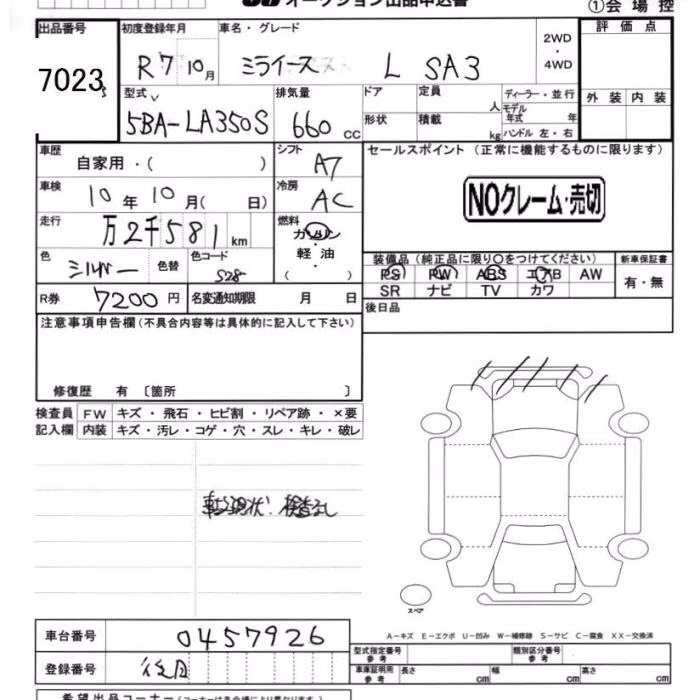 オークション出品申込書
①会場控
出品番号 初度登録年月 車名・グレード 評価点
7023 R7 10月 ミライース L SA3 2WD・4WD
型式 排気量 ドア 定員 人 ディーラー・並行 外装 内装
5BA-LA350S 660cc 形状 積載 kg モデル年式 年
ハンドル 左・右
車歴 自家用・( ) シフト A7 セールスポイント (正常に機能するものに限ります)
車検 10年10月( 日) 冷房 AC NOクレーム・売切
走行 万2千581km 燃料 ガソリン・軽油・( )
色 シルバー 色替 色コード S28
装備品 (純正品に限り〇をつけてください) 新車保証書
PS PW ABS エアB AW 有・無
SR ナビ TV カワ
R券 7200円 名変通知期限 月 日 後日品
注意事項申告欄(不具合内容等は具体的に記入して下さい)
修復歴 有 〔箇所 〕
検査員 FW キズ・飛石・ヒビ割・リペア跡・×要
記入欄 内装 キズ・汚レ・コゲ・穴・スレ・キレ・破レ
現状 検査なし
スペア
A-キズ E-エクボ U-凹み W-補修跡 S-サビ C-腐食 XX-交換済
車台番号 0457926
型式指定番号 参考 類別区分番号 参考
登録番号 後日
車庫証明用 参考 長さ cm 幅 cm 高さ cm
希望出品コーナー